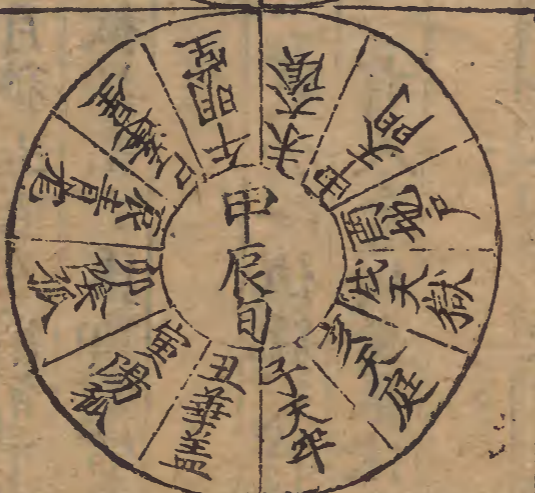 甲辰旬
子天牢
丑華蓋
寅陽孤
卯陰孤
辰青龍
巳蓬星
午明堂
未太陰
申天門
酉地戶
戌天獄
亥天庭